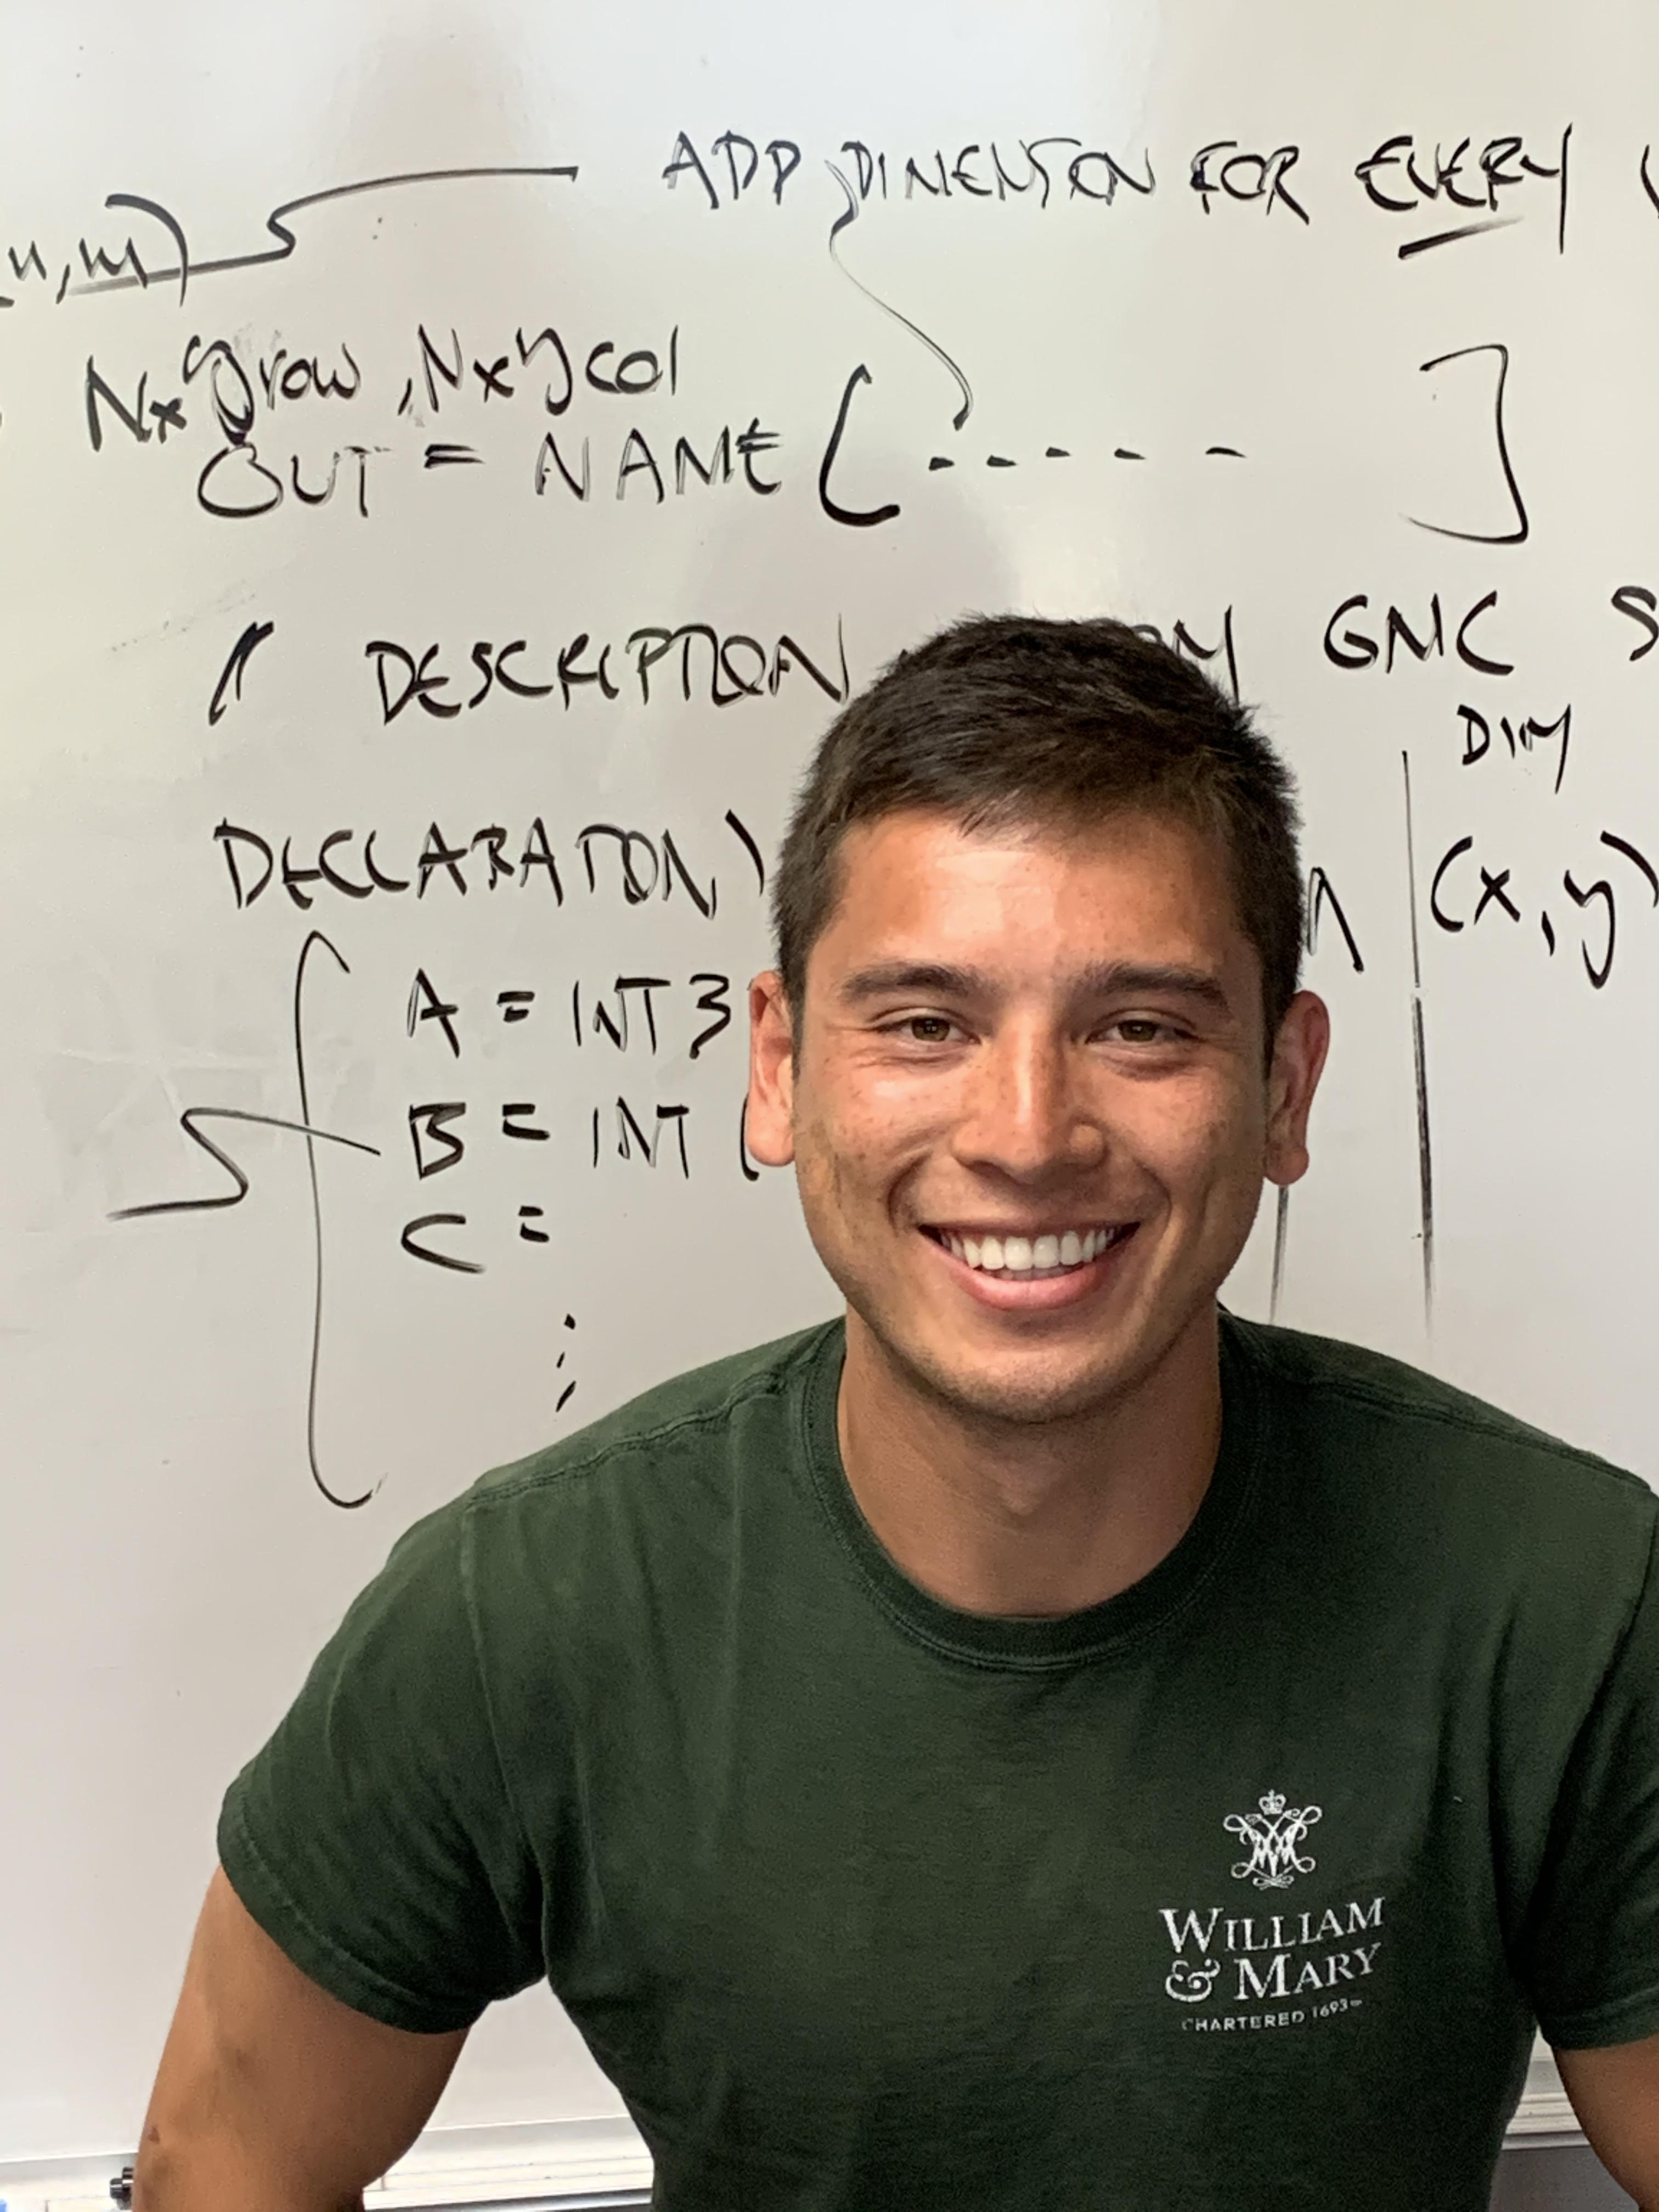 ADD DIMENSION FOR EVERY
(n,m)
Nxyrow, Nxycol
OUT = NAME [ - - - - - ]
DESCRIPTION
GMC S
DIM
DECLARATION)
(x,y)
A = INT 3
B = INT (
C =
⋮
WILLIAM
& MARY
CHARTERED 1693